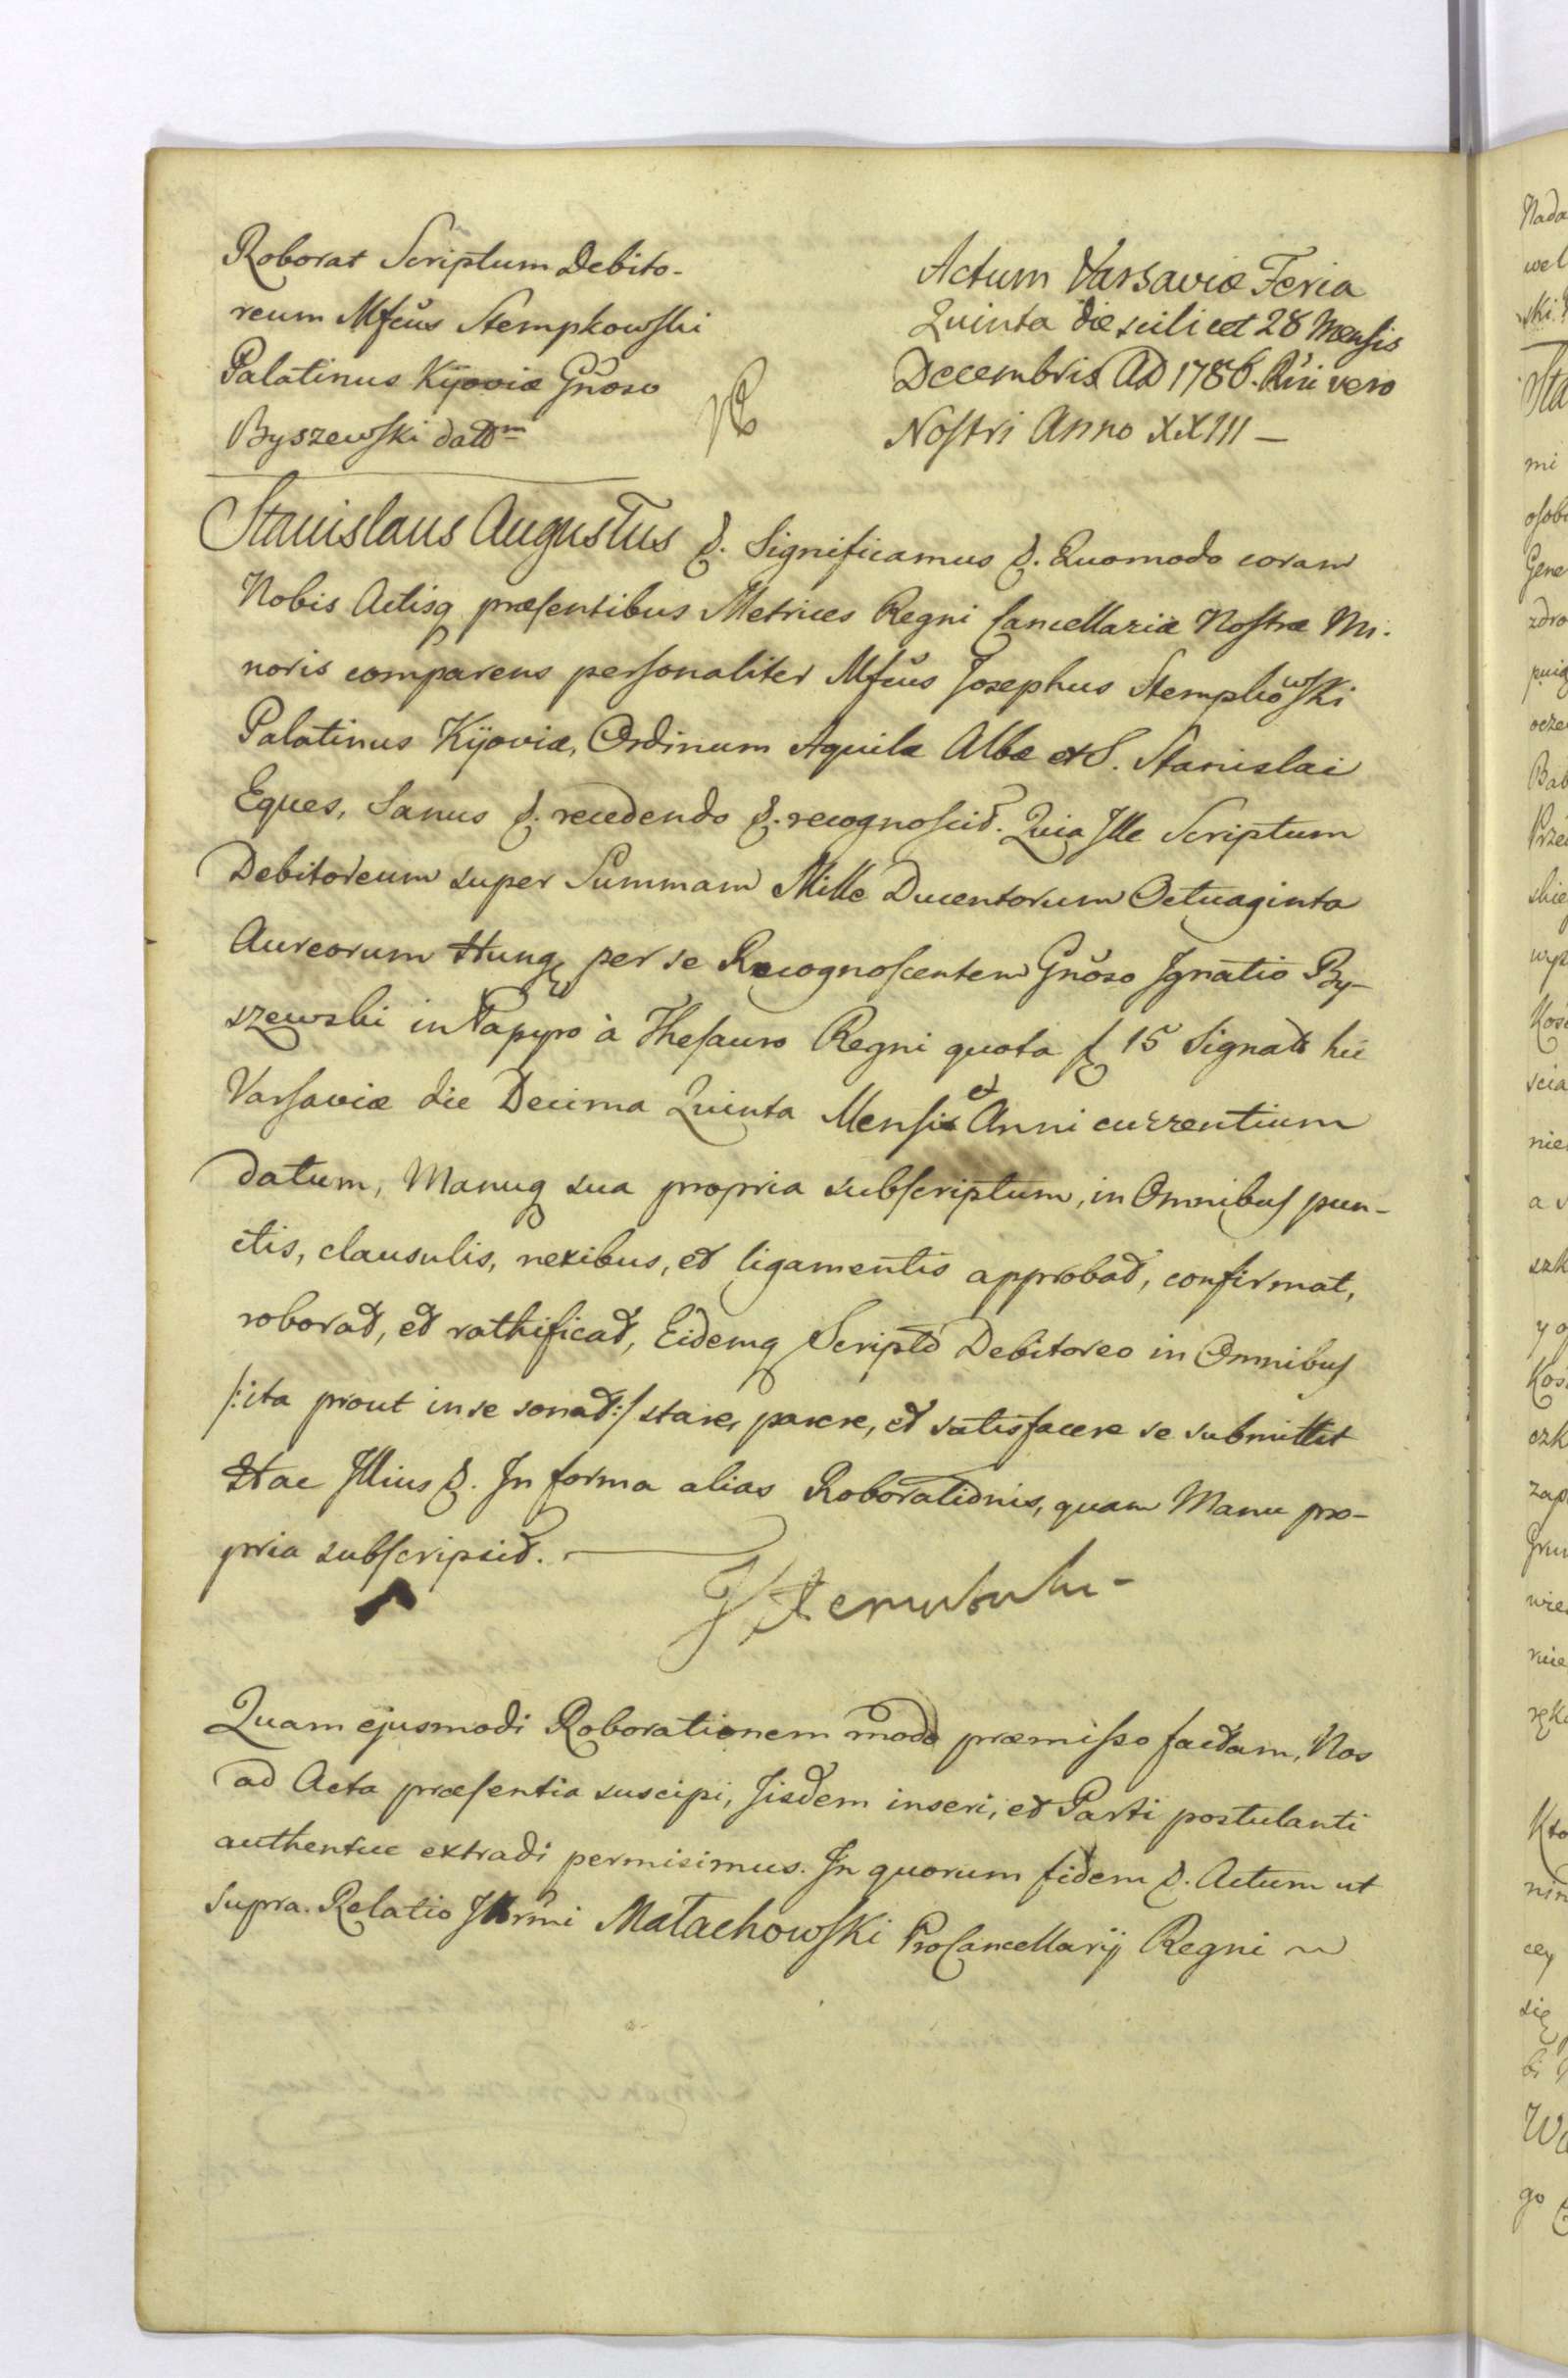 Roborat Scriptum Debito-
reum Mfcus Stempkowski
Palatinus Kijoviæ Gnoso
Byszewski datm
Actum Varsaviæ Feria
Quinta die scilicet 28 Mensis
Decembris AD 1786. Rni vero
Nostri Anno XXIII —
Stanislaus Augustus &. Significamus &. Quomodo coram
Nobis Actisq præsentibus Metrices Regni Cancellariæ Nostræ Mi-
noris comparens personaliter Mfcus Josephus Stempkowski
Palatinus Kijoviæ, Ordinum Aquilæ Albæ et S. Stanislai
Eques, Sanus &. recedendo &. recognoscit. Quia Ille Scriptum
Debitoreum super Summam Mille Ducentorum Octuaginta
Aureorum Hung per se Recognoscentem Gnoso Ignatio By-
szewski in Papyro à Thesauro Regni quota f 15 Signat hic
Varsaviæ die Decima Quinta Mensis et Anni currentium
datum, Manuq sua propria subscriptum, in Omnibus pun-
ctis, clausulis, nexibus, et ligamentis approbat, confirmat,
roborat, et rathificat, Eidemq Scripto Debitoreo in Omnibus
/:ita prout in se sonat:/ stare, parere, et satisfacere se submittit
Hac Illius &. In forma alias Roborationis, quam Manu pro-
pria subscripsit.
JStempkowski
Quam ejusmodi Roborationem modo præmisso factam, Nos
ad Acta præsentia suscipi, Iisdem inseri, et Parti postulanti
authentice extradi permisimus. In quorum fidem &. Actum ut
supra. Relatio Illrmi Małachowski ProCancellarij Regni